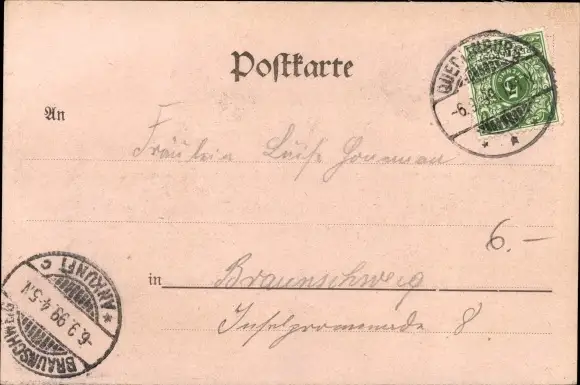 Postkarte
QUEDLINBURG
-6.9.99
5
An
Fräulein Luise
6.-
in Braunschweig
Inselpromenade 8
BRAUNSCHWEIG
-6.9.99.4-5N
* ANKUNFT C